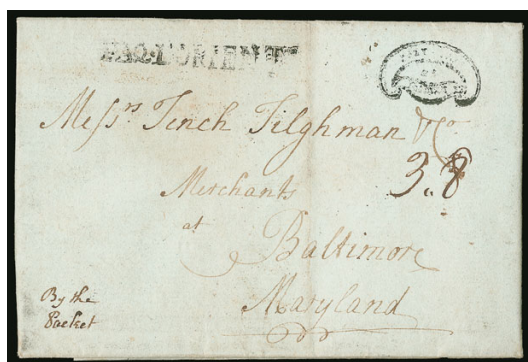 PAQ·L'ORIENT
Messrs Tench Tilghman & Co
3.8
Merchants
at
Baltimore
Maryland
By the
Packet